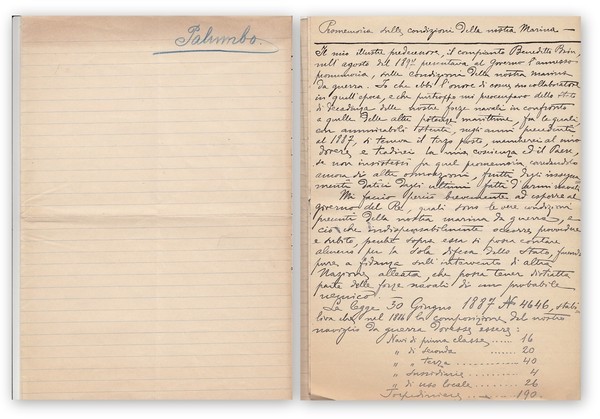 Palumbo.
Promemoria sulle condizioni della nostra Marina
Il mio illustre predecessore, il compianto Benedetto Brin,
nell'agosto del 189 presentava al Governo l'annesso
promemoria, sulle condizioni della nostra marina
da guerra. Io che ebbi l'onore di esserne collaboratore
in quell'epoca, e che purtroppo mi preoccupavo dello stato
di decadenza delle nostre forze navali in confronto
a quelle delle altre potenze marittime, fra le quali,
con ammirabili sforzi, negli anni precedenti
al 1887, si teneva il terzo posto, mancherei al mio
dovere e tradirei la mia coscienza ed il Paese,
se non insistessi su quel promemoria, corredandolo
ancora di altre osservazioni, frutti degli insegna
menti datici dagli ultimi fatti d'armi navali
Mi faccio perciò brevemente ad esporre al
governo del Re, quali sono le vere condizioni
presenti della nostra marina da guerra, e
ciò che indispensabilmente occorre, provvedere
e subito, perchè sopra essa si possa contare
almeno per la sola difesa dello Stato, facendo
pure, a fidanza sull'intervento di altra
Nazione alleata, che possa tener distratta
parte delle forze navali di un probabile
nemico.
La legge 30 Giugno 1887 No 4646, stabi
liva che nel 1896 la composizione del nostro
naviglio da guerra dovesse essere:
Navi di prima classe ...... 16
" di seconda ...... 20
" " terza ...... 40
" sussidiarie ...... 4
" di uso locale ...... 26
Torpediniere ...... 190